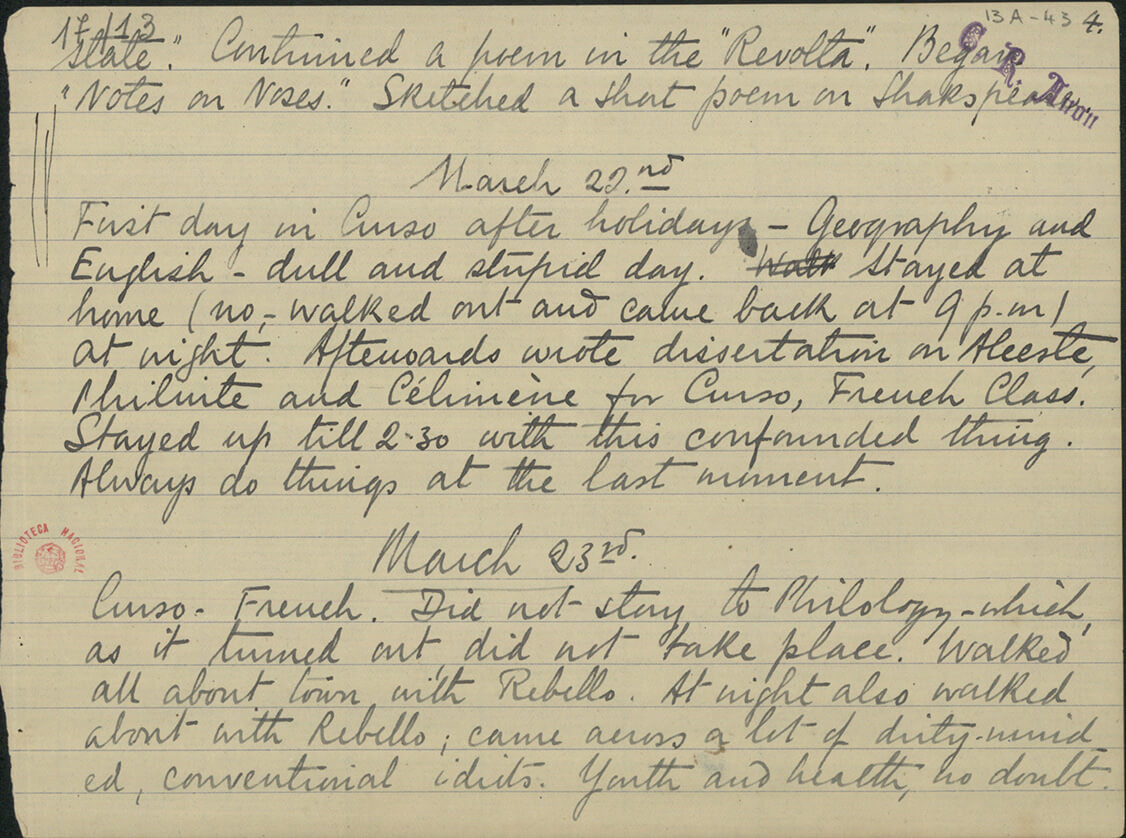 13A-43 4.
17/13
C. R. Anon
state". Continued a poem in the "Revolta". Began
"Notes on Noses." Sketched a short poem on Shakspeare
March 22.nd
First day in Curso after holidays - Geography and
English - dull and stupid day. Walk Stayed at
home (no, - walked out and came back at 9 p.m)
at night. Afterwards wrote dissertation on Alceste,
Philinte and Célimène for Curso, French Class.
Stayed up till 2.30 with this confounded thing.
Always do things at the last moment.
BIBLIOTECA NACIONAL
March 23rd.
Curso - French. Did not stay to Philology - which,
as it turned out, did not take place. Walked
all about town with Rebello. At night also walked
about with Rebello; came across a lot of dirty-mind
ed, conventional idiots. Youth and health, no doubt.